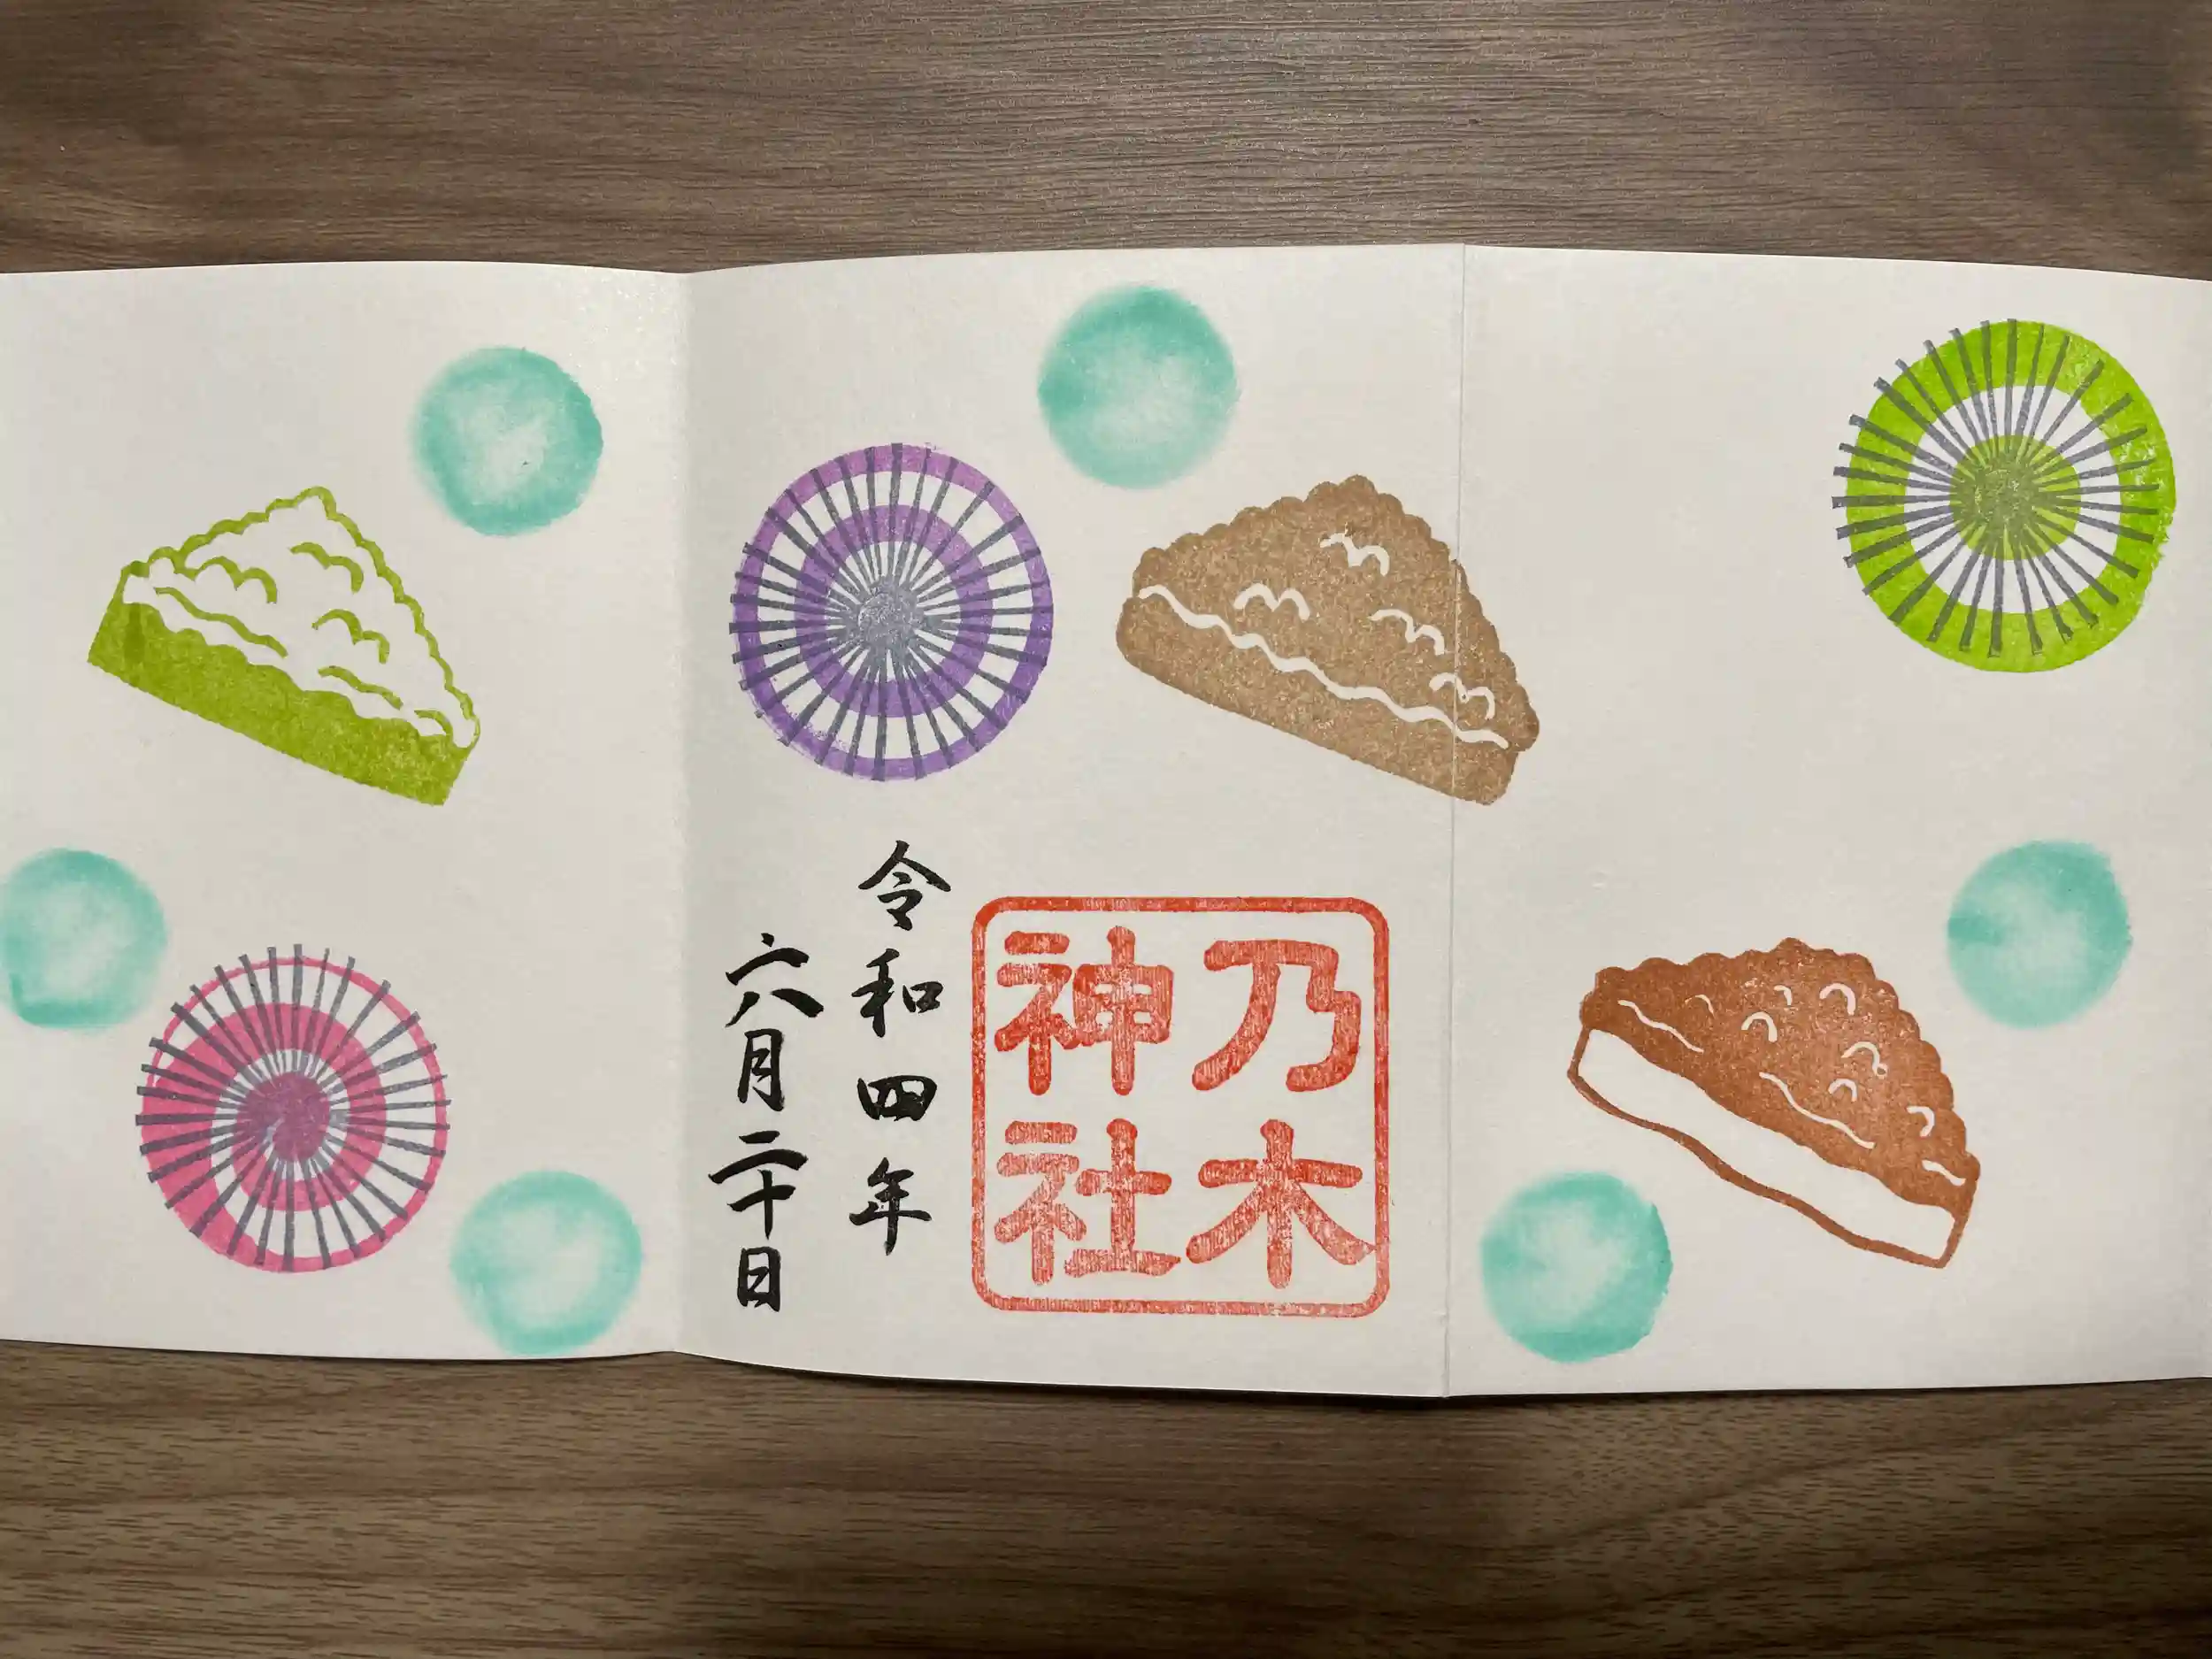 乃木
神社
令和四年
六月二十日